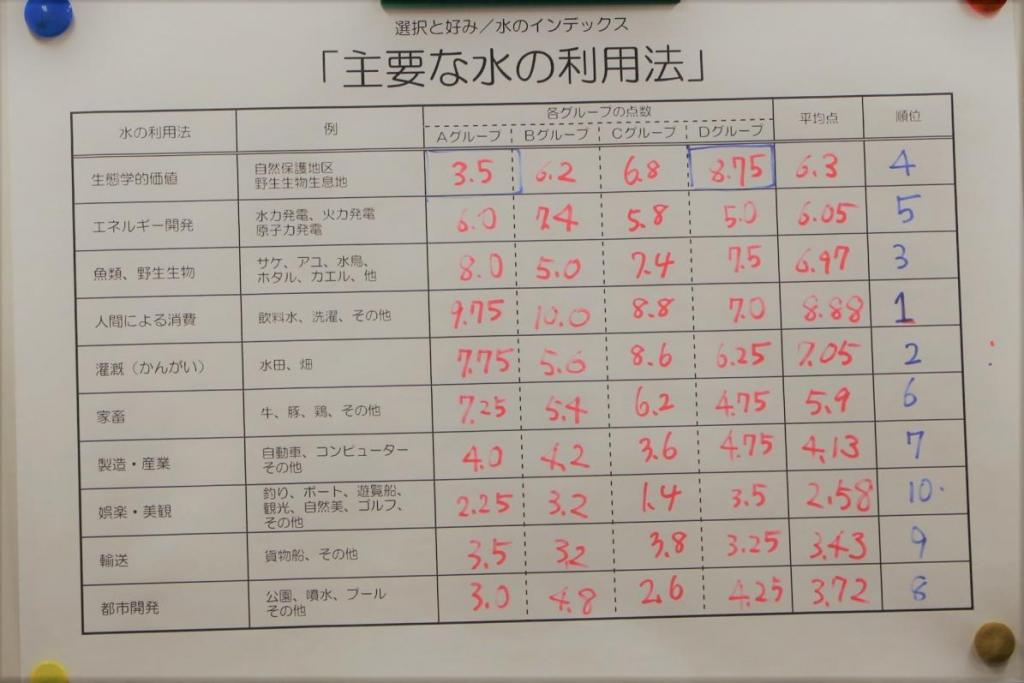 選択と好み／水のインデックス
「主要な水の利用法」
水の利用法 例 各グループの点数 平均点 順位
Aグループ Bグループ Cグループ Dグループ
生態学的価値 自然保護地区 3.5 6.2 6.8 8.75 6.3 4
野生生物生息地
エネルギー開発 水力発電、火力発電 6.0 7.4 5.8 5.0 6.05 5
原子力発電
魚類、野生生物 サケ、アユ、水鳥、 8.0 5.0 7.4 7.5 6.97 3
ホタル、カエル、他
人間による消費 飲料水、洗濯、その他 9.75 10.0 8.8 7.0 8.88 1
灌漑（かんがい） 水田、畑 7.75 5.6 8.6 6.25 7.05 2
家畜 牛、豚、鶏、その他 7.25 5.4 6.2 4.75 5.9 6
製造・産業 自動車、コンピューター 4.0 4.2 3.6 4.75 4.13 7
その他
娯楽・美観 釣り、ボート、遊覧船、 2.25 3.2 1.4 3.5 2.58 10
観光、自然美、ゴルフ、
その他
輸送 貨物船、その他 3.5 3.2 3.8 3.25 3.43 9
都市開発 公園、噴水、プール 3.0 4.8 2.6 4.25 3.72 8
その他